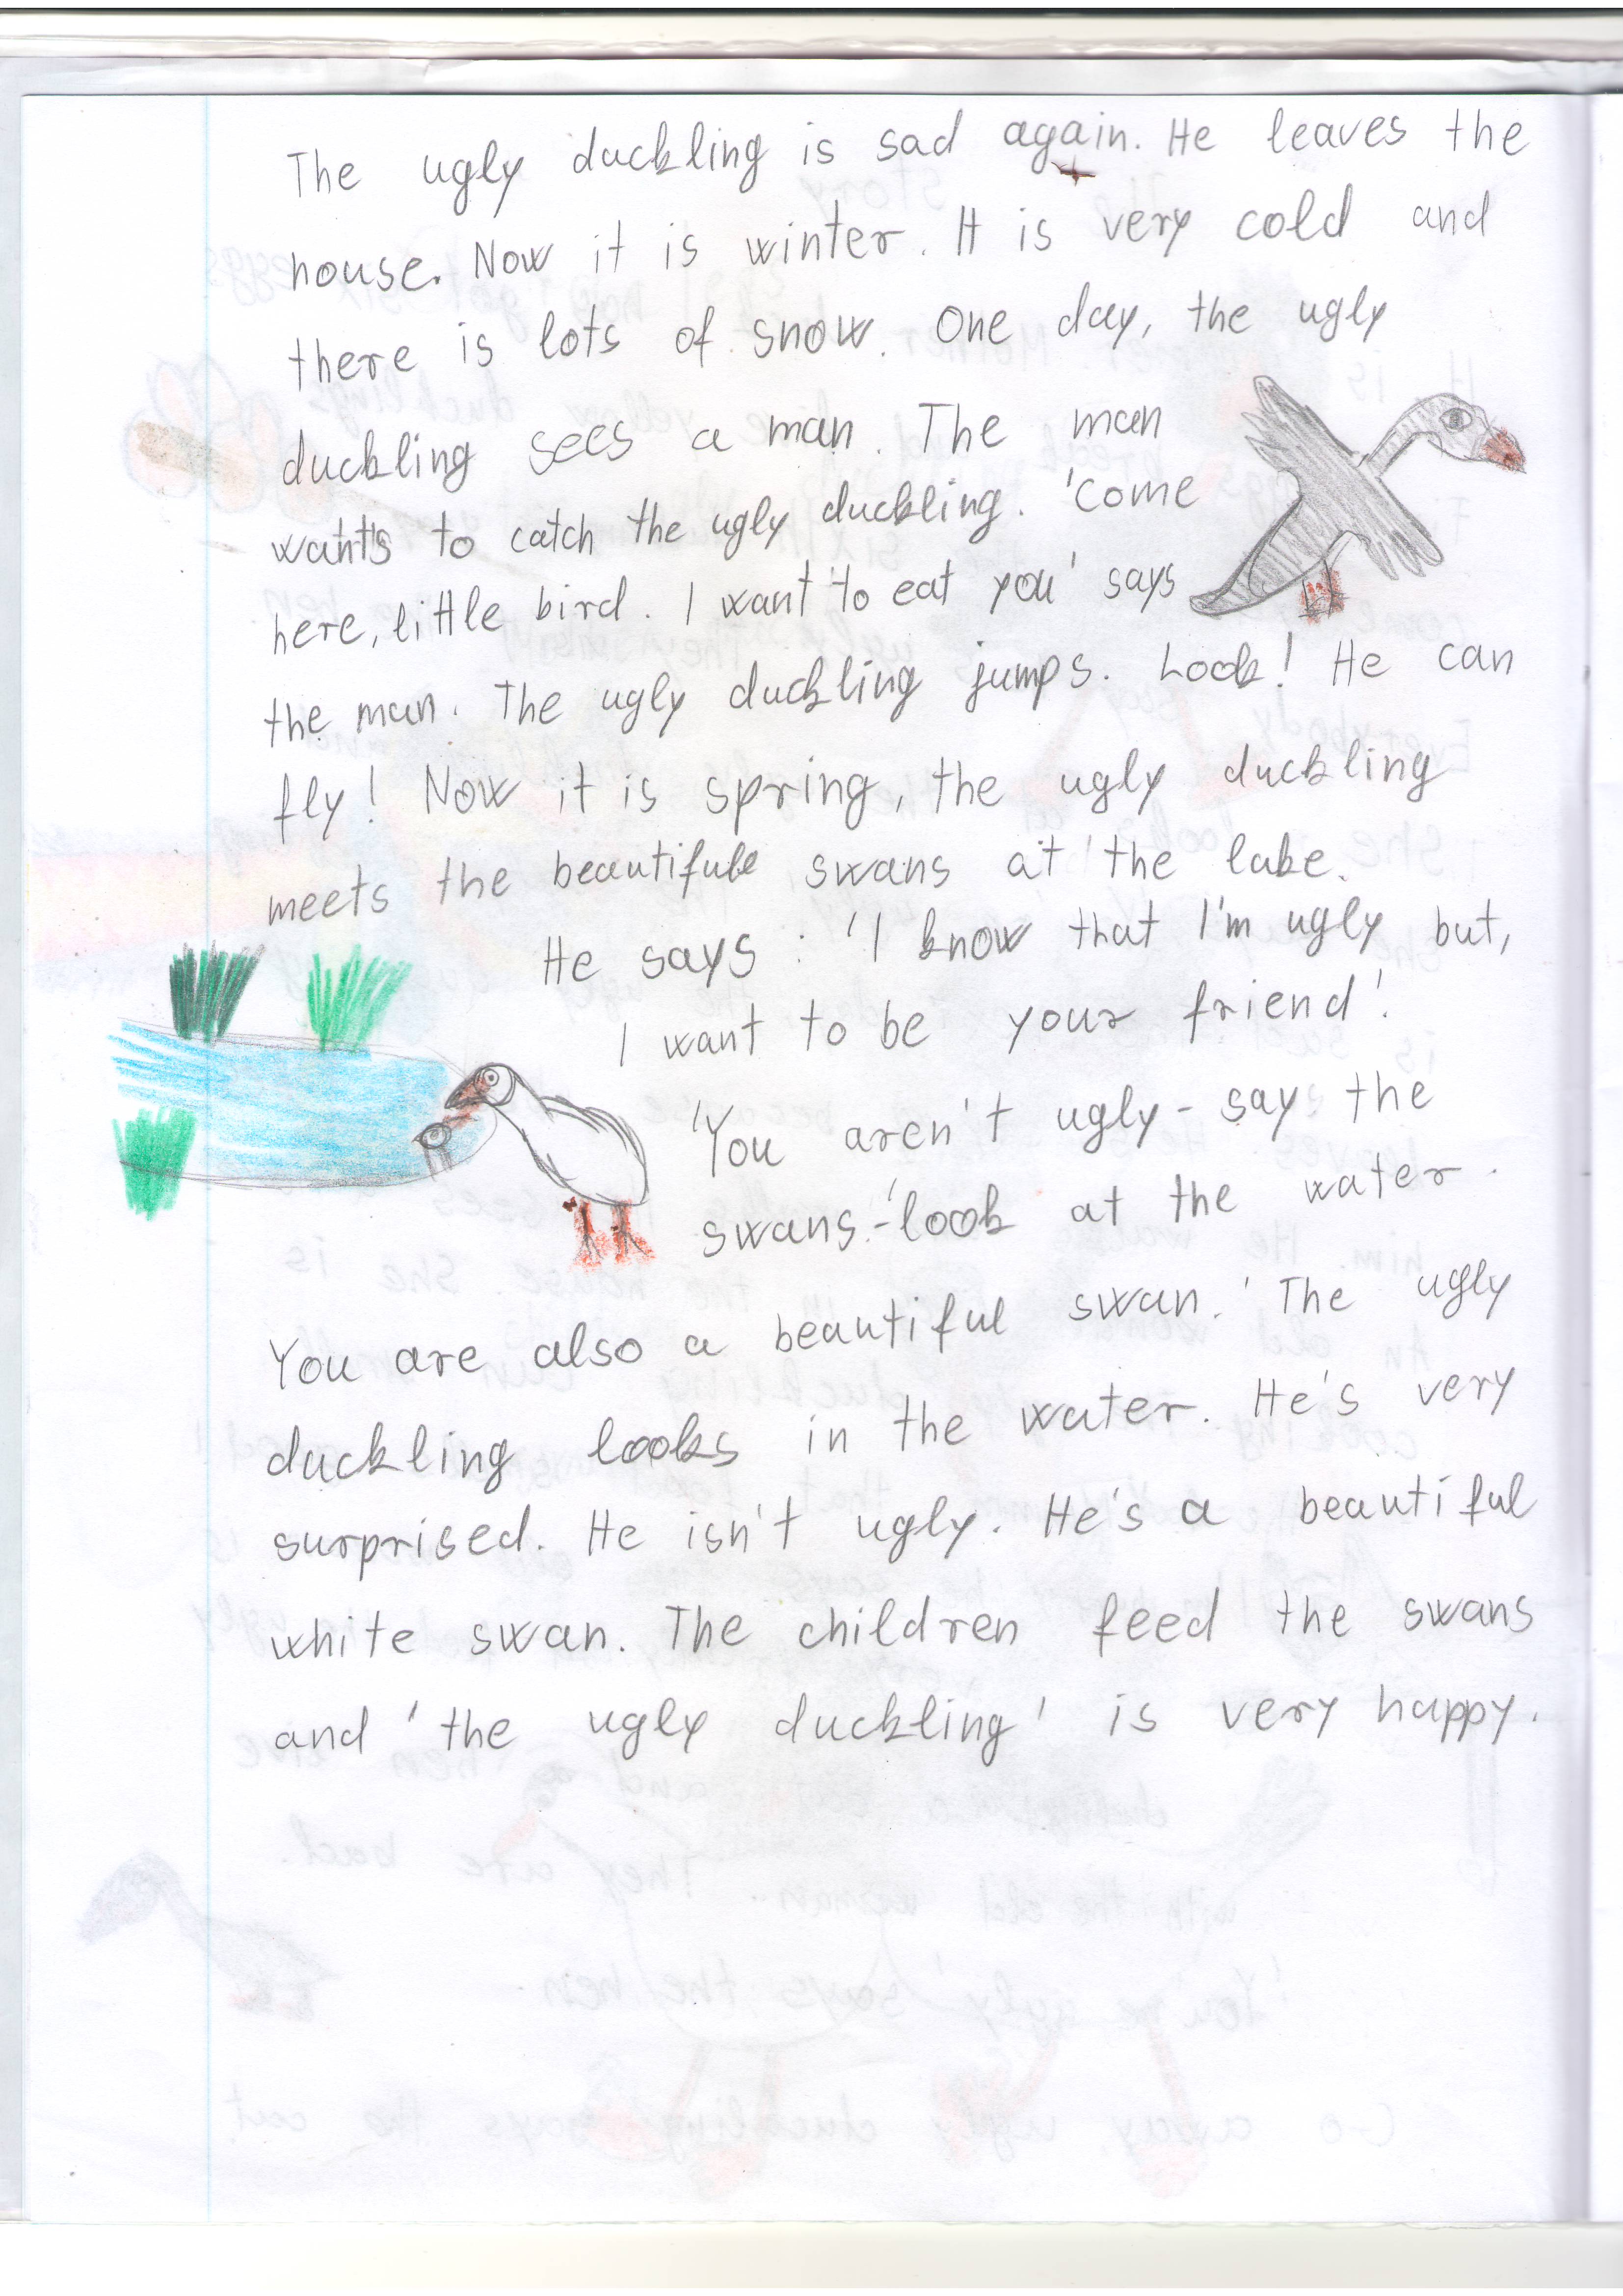 The ugly duckling is sad again. He leaves the
house. Now it is winter. It is very cold and
there is lots of snow. One day, the ugly
duckling sees a man. The man
wants to catch the ugly duckling. 'Come
here, little bird. I want to eat you' says
the man. The ugly duckling jumps. Look! He can
fly! Now it is spring, the ugly duckling
meets the beautifule swans at the lake.
He says: 'I know that I'm ugly but,
I want to be your friend'.
'You aren't ugly - say the
swans.-'look at the water.
You are also a beautiful swan.' The ugly
duckling looks in the water. He's very
surprised. He isn't ugly. He's a beautiful
white swan. The children feed the swans
and 'the ugly duckling' is very happy.